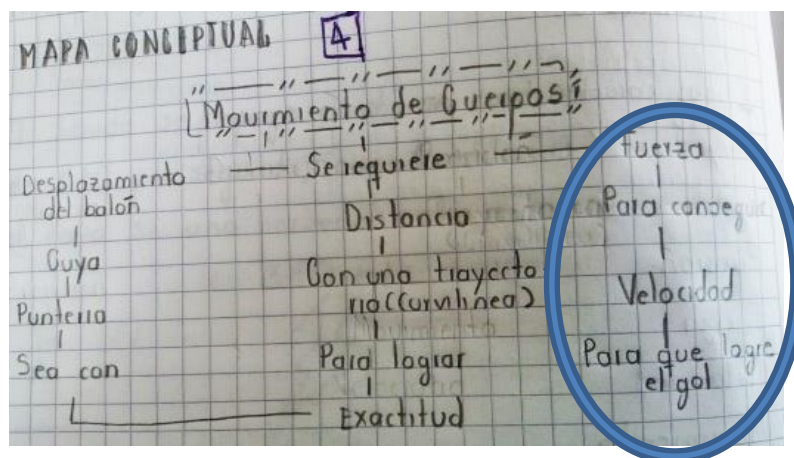 MAPA CONCEPTUAL 4
Movimiento de Cuerpos
Se requiere
Desplazamiento
del balón
Cuya
Puntería
Sea con
Distancia
Con una trayecto
ria (curvilínea)
Para lograr
Exactitud
Fuerza
Para conseguir
Velocidad
Para que logre
el gol